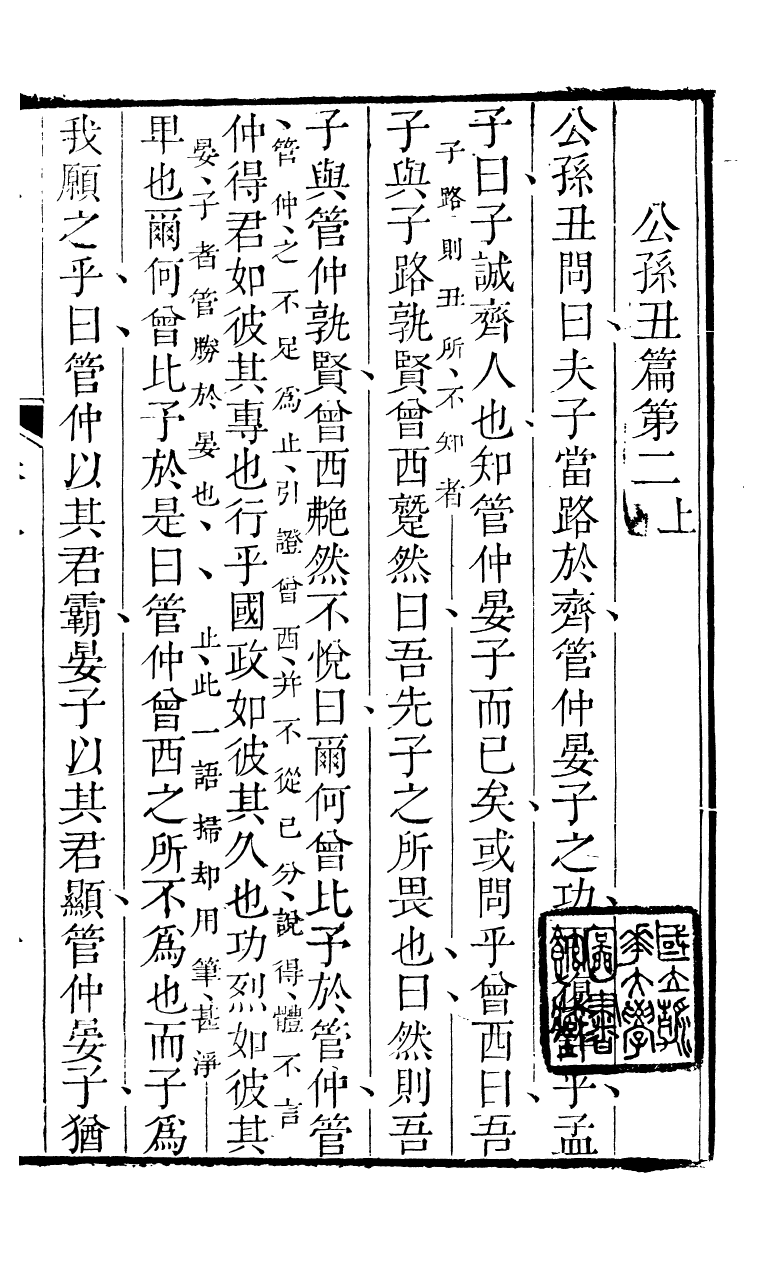 公孫丑篇第二上
公孫丑問曰夫子當路於齊管仲晏子之功乎孟
子曰子誠齊人也知管仲晏子而已矣或問乎曾西曰吾
子路則丑所不知者
子與子路孰賢曾西蹵然曰吾先子之所畏也曰然則吾
子與管仲孰賢曾西艴然不悅曰爾何曾比予於管仲管
管仲之不足爲止引證曾西并不從已分說得體不言
仲得君如彼其專也行乎國政如彼其久也功烈如彼其
晏子者管勝於晏也止此一語掃却用筆甚淨
卑也爾何曾比予於是曰管仲曾西之所不爲也而子爲
我願之乎曰管仲以其君霸晏子以其君顯管仲晏子猶
國立清
華大學
圖書